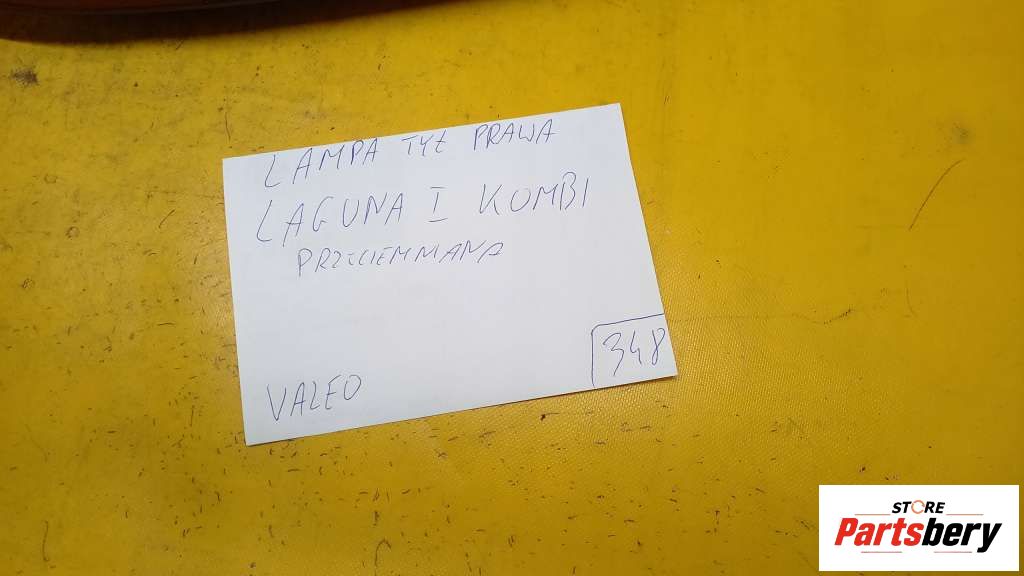 LAMPA TYŁ PRAWA
LAGUNA I KOMBI
PRZYCIEMMANA
VALEO
348
STORE
Partsbery